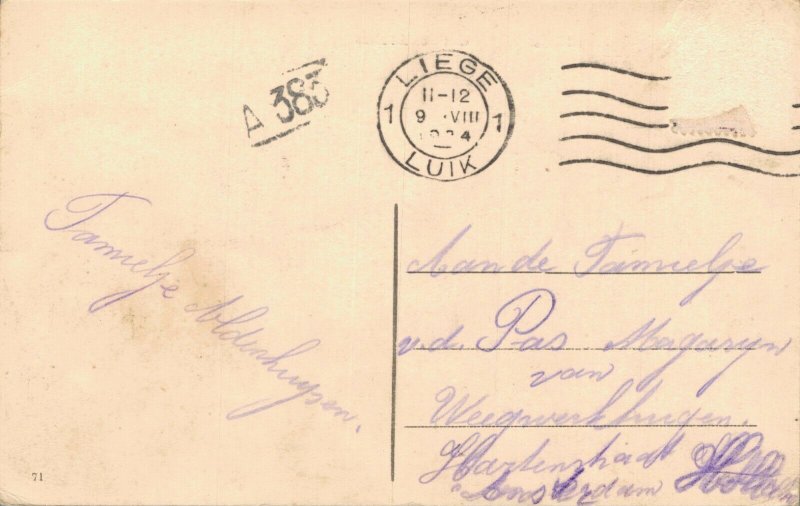 A 383
LIEGE
11-12
1 9 VIII 1
1924
LUIK
Familje Aldenhuysen.
Aan de Familje
v.d. Pas Magazijn
van
Weegwerktuigen.
Hartenstraat
Amsterdam Holland
71